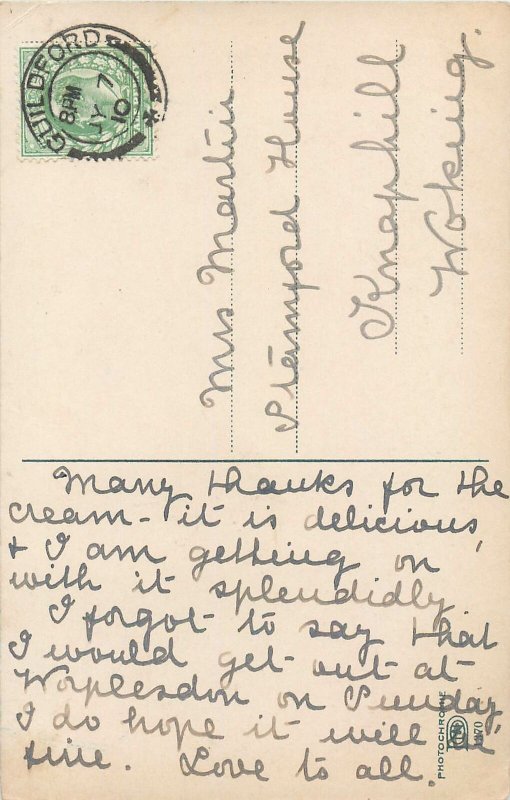 GUILDFORD
8 PM
JY 7
10
Mrs Martin
Stamford House
Knaphill
Woking.
Many thanks for the
cream - it is delicious,
+ I am getting on
with it splendidly.
I forgot to say that
I would get out at
Worplesdon on Sunday
I do hope it will be
fine. Love to all.
PHOTOCHROME